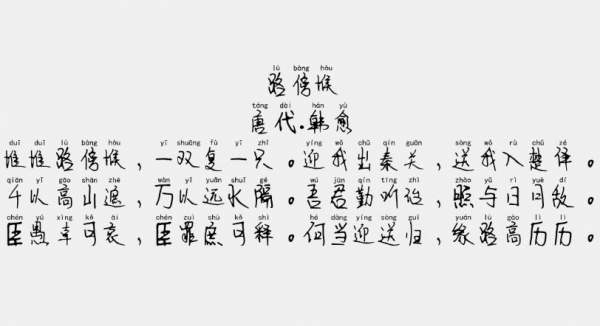 lù bàng hòu
路傍堠
táng dài hán yù
唐代.韩愈
duī duī lù bàng hòu yī shuāng fù yī zhī yíng wǒ chū qín guān sòng wǒ rù chǔ zé
堆堆路傍堠，一双复一只。迎我出秦关，送我入楚泽。
qiān yǐ gāo shān zhē wàn yǐ yuǎn shuǐ gé wú jūn qín tīng zhì zhào yǔ rì yuè dí
千以高山遮，万以远水隔。吾君勤听治，照与日月敌。
chén yú xìng kě āi chén zuì shù kě shì hé dāng yíng sòng guī yuán lù gāo lì lì
臣愚幸可哀，臣罪庶可释。何当迎送归，缘路高历历。